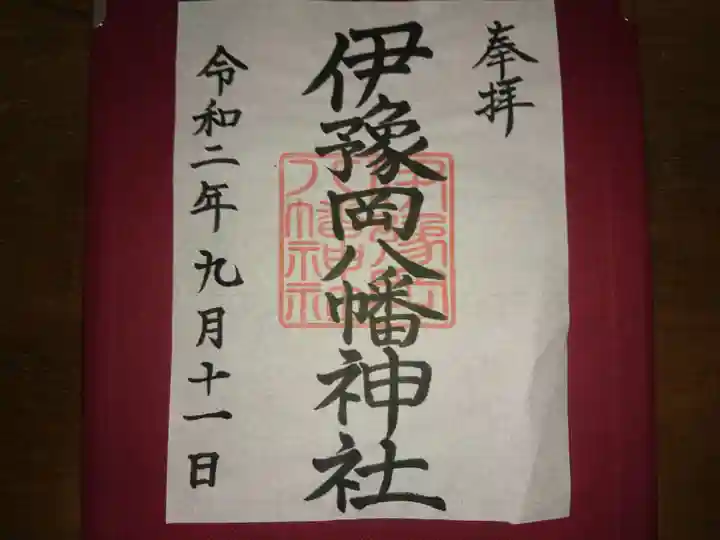 奉拝
伊豫岡八幡神社
令和二年九月十一日
伊豫岡
八幡神社